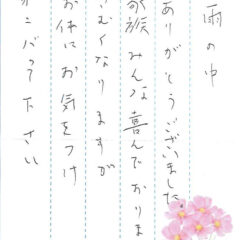 雨の中
ありがとうございました。
家族みんな喜んでおりま
さむくなりますが
お体にお気をつけ
ガンバって下さい